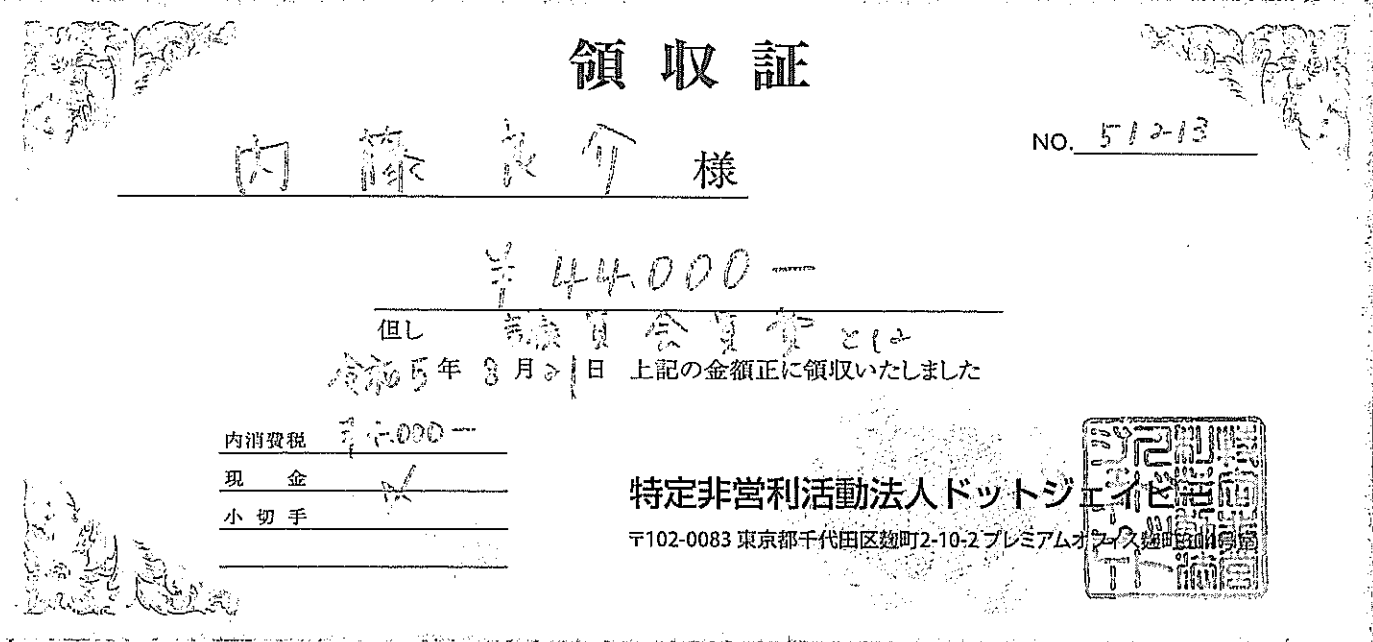 領収証
内藤良介 様
NO. 51213
¥44,000-
但し 議員会員費として
令和5年8月21日 上記の金額正に領収いたしました
内消費税 ,000-
現金
小切手
特定非営利活動法人ドットジェイピー
〒102-0083 東京都千代田区麹町2-10-2 プレミアムオフィス麹町